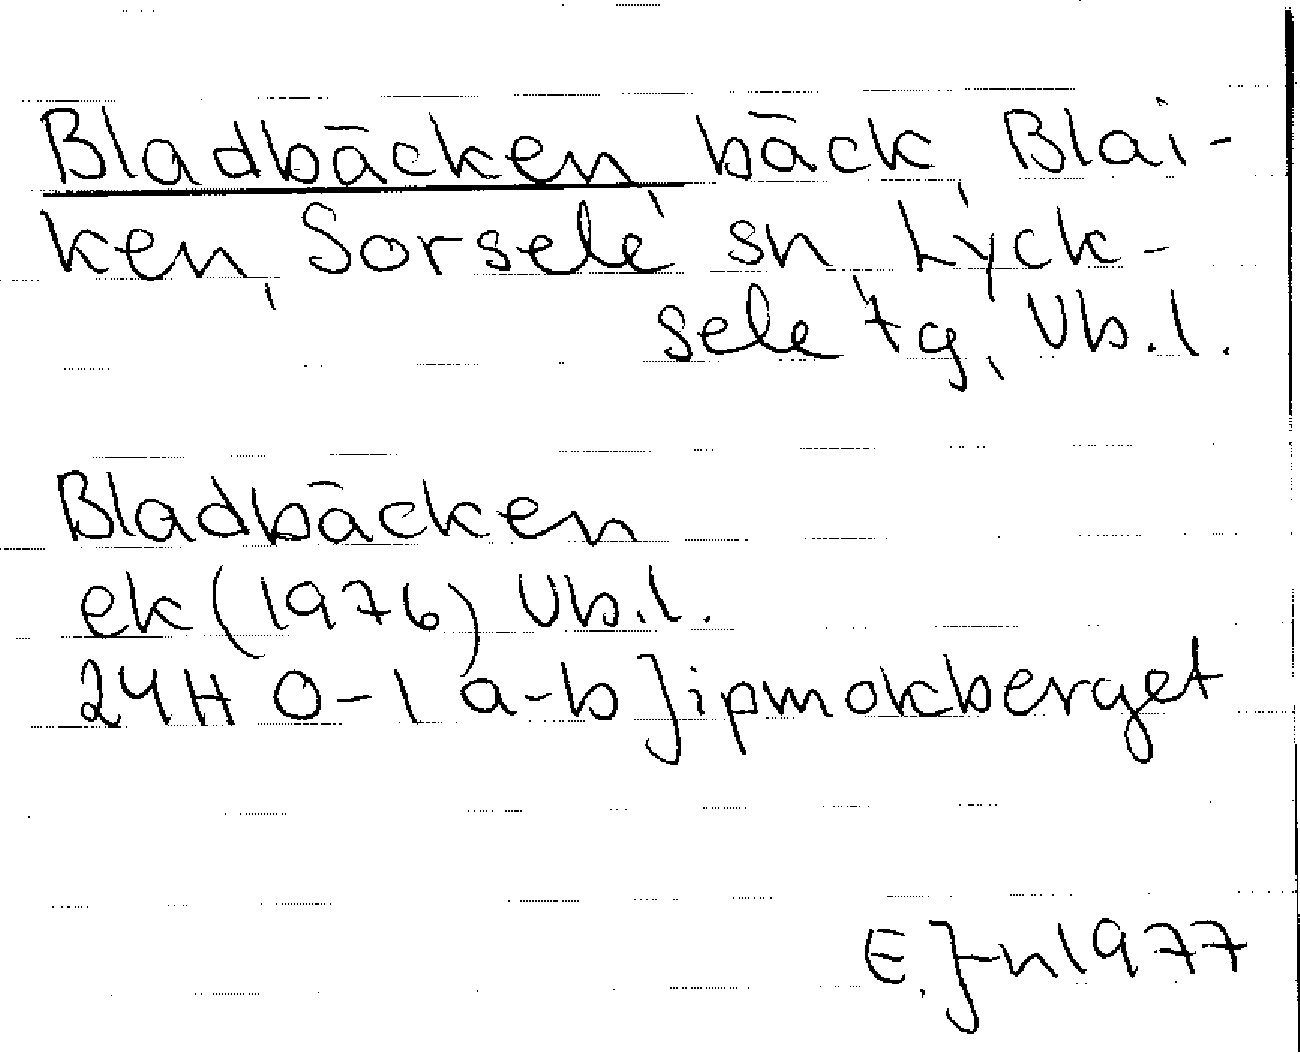 Bladbäcken, bäck, Blai-
ken, Sorsele sn, Lyck-
sele tg, Vb.l.
Bladbäcken
ek (1976) Vb.l.
24H 0-1 a-b Jipmokberget
E. J-n 1977